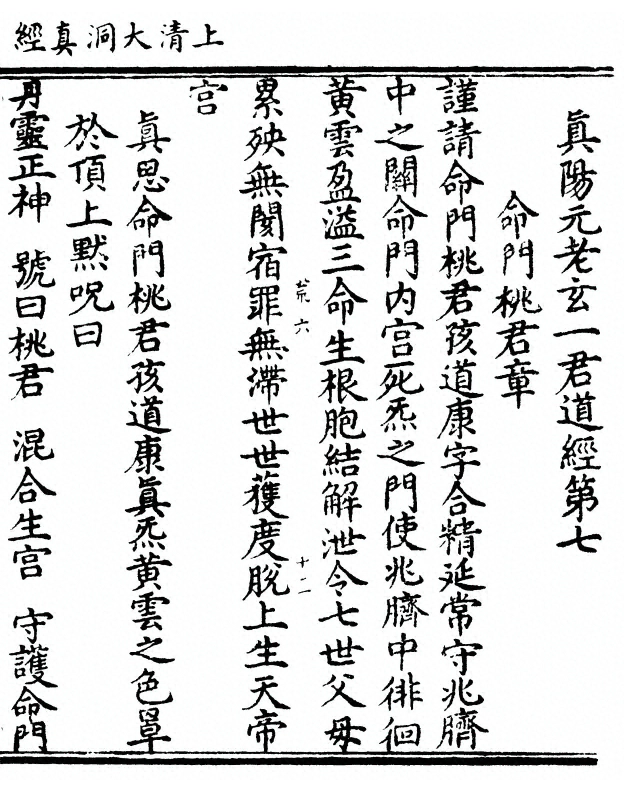 上清大洞真經
眞陽元老玄一君道經第七
命門桃君章
謹請命門桃君孩道康字合精延常守兆臍
中之關命門内宫死炁之門使兆臍中徘徊
黄雲盈溢三命生根胞結解泄令七世父母
累殃無閡宿罪無滯世世獲度脫上生天帝
宫
眞思命門桃君孩道康眞炁黄雲之色罩
於頂上黙呪曰
丹靈正神　號曰桃君　混合生宫　守護命門
六
十二